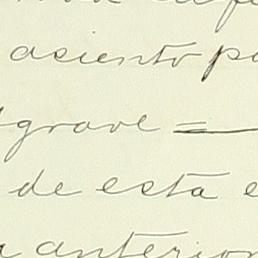 asiento
grave =
de esta
anterior